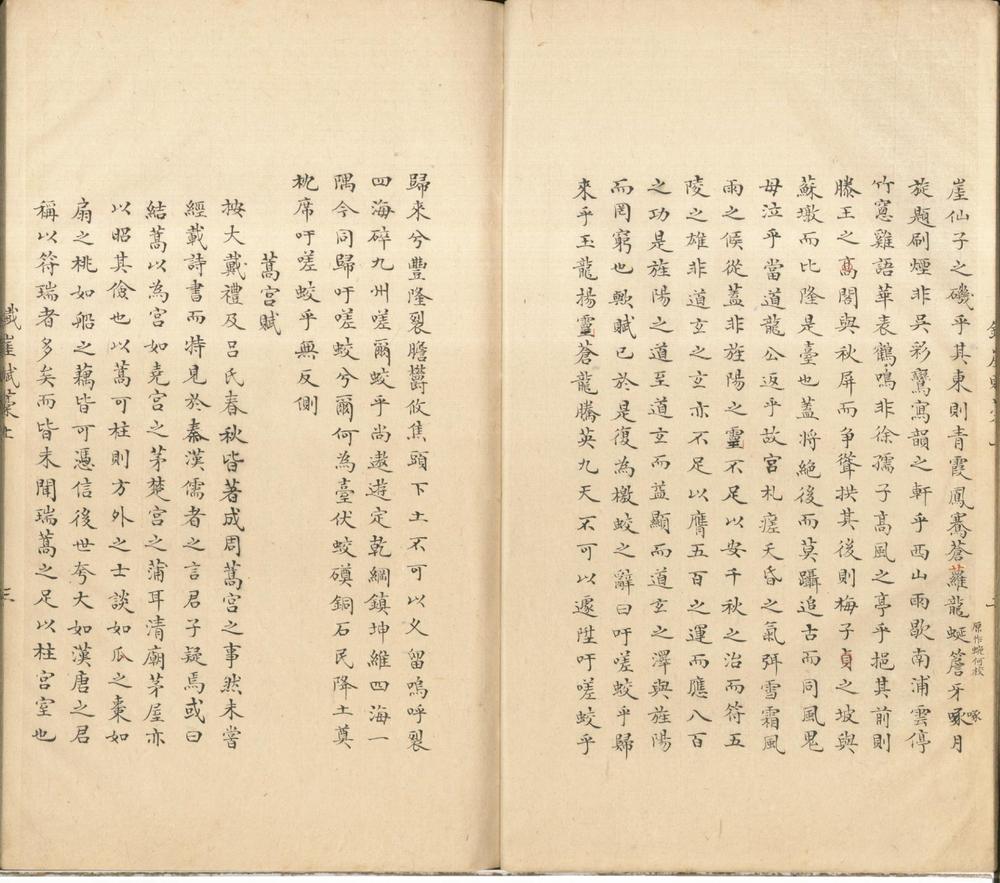 崖仙子之磯乎其東則青霞鳳騫蒼蘿龍蜒簷牙啄月
原作蜿何校
啄
旋題刷煙非吳彩鸞寫韻之軒乎西山雨歇南浦雲停
竹窻雞語華表鶴鳴非徐孺子高風之亭乎挹其前則
滕王之高閣與秋屏而争聳拱其後則梅子貞之坡與
蘇墩而比隆是臺也蓋将絶後而莫躡追古而同風鬼
母泣乎當道龍公返乎故宫札瘥天昏之氣弭雪霜風
雨之候從蓋非旌陽之靈不足以安千秋之治而符五
陵之雄非道玄之玄亦不足以膺五百之運而應八百
之功是旌陽之道至道玄而益顯而道玄之澤與旌陽
而罔窮也歟賦已於是復為檄蛟之辭曰吁嗟蛟乎歸
來乎玉龍揚靈蒼龍騰英九天不可以遽陞吁嗟蛟乎
歸来兮豐隆裂膽欝攸焦頭下土不可以乂留嗚呼裂
四海碎九州嗟爾蛟乎尚遨遊定乾綱鎮坤維四海一
隅今同歸吁嗟蛟兮爾何為臺伏蛟礩銅石民降土奠
枕席吁嗟蛟乎無反側
蒿宫賦
按大戴禮及吕氏春秋皆著成周蒿宫之事然未嘗
經載詩書而特見於秦漢儒者之言君子疑焉或曰
結蒿以為宫如堯宫之茅楚宫之蒲耳清廟茅屋亦
以昭其儉也以蒿可柱則方外之士談如瓜之棗如
扇之桃如船之藕皆可憑信後世夸大如漢唐之君
稱以符瑞者多矣而皆未聞瑞蒿之足以柱宫室也
鐵崖賦藁上
三